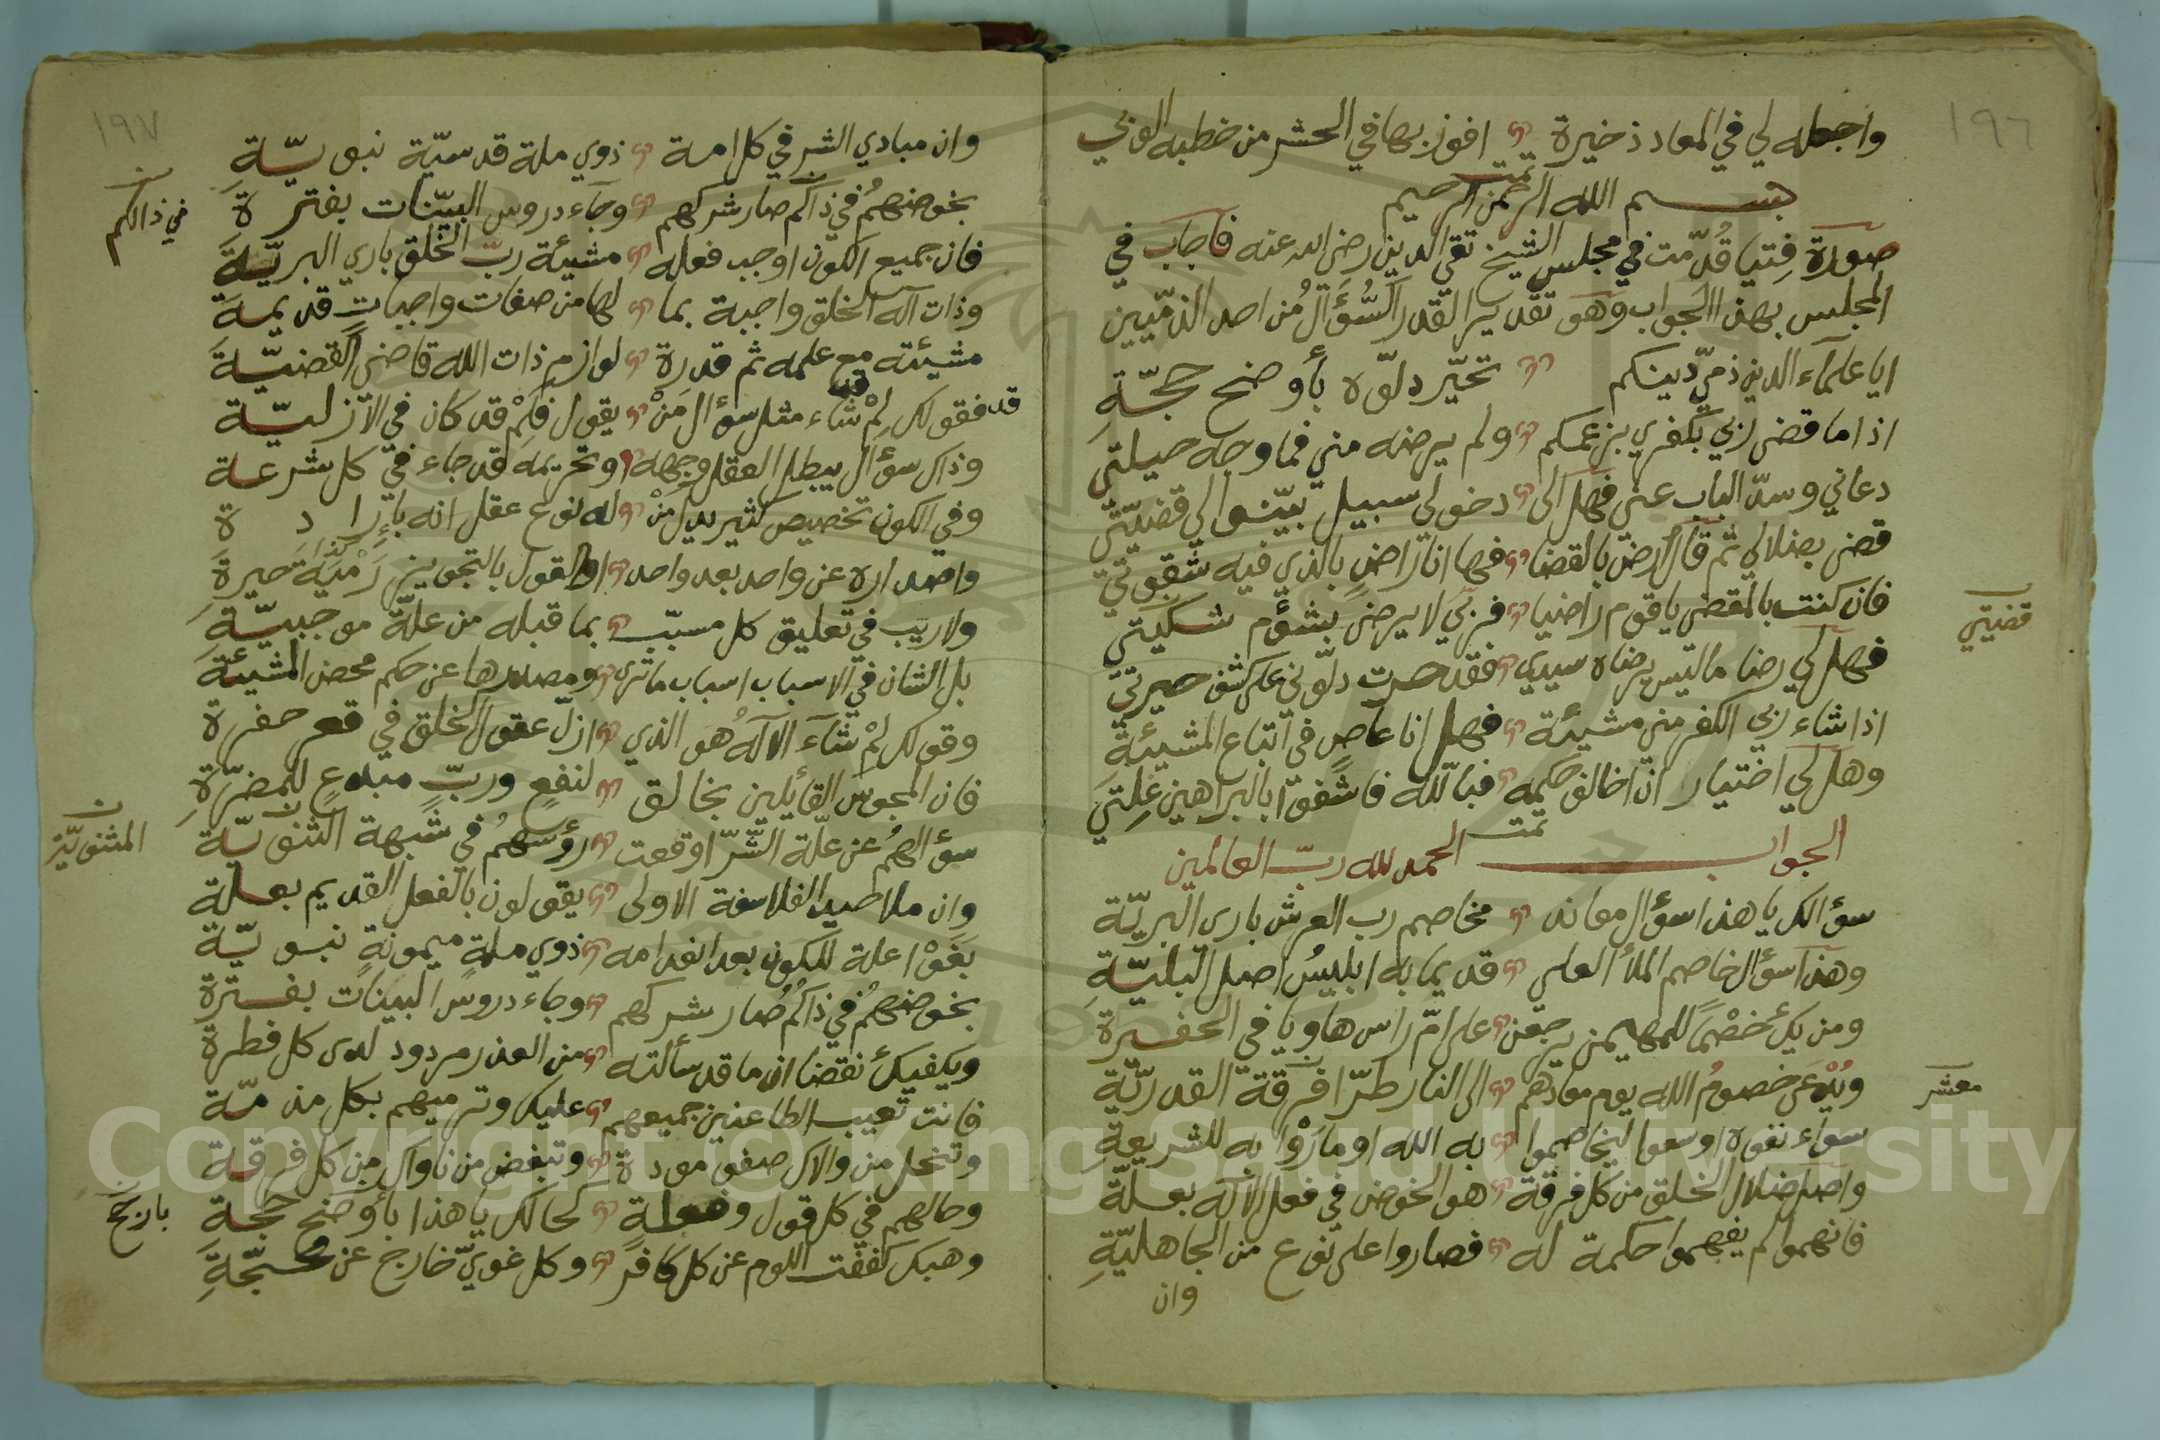 ١٩٦
واجعله لي في المعاد ذخيرة افوز بها في الحشر من خطبه الوبي
تمت
بسم الله الرحمن الرحيم
صورة فتيا قُدّمت في مجلس الشيخ تقي الدين رضي الله عنه فاجاب في
المجلس بهذا الجواب وهو تقدير القدر السُّؤَالُ من احد الذمّيين
ايا علماء الدين ذمّي دينكم تحيّر دلّوه بأوضح حجّةِ
اذا ما قضى ربي بكفري بزعمكم ولم يرضه مني فما وجه حيلتي
دعاني وسدّ الباب عني فهل الى دخولي سبيل بيّنوا لي قضيّتي
قضى بضلالي ثم قال ارض بالقضا فها انا راضٍ بالذي فيه شقوتي
قضيتي
فان كنت بالمقضي يا قوم راضيا فربّي لا يرضى بشؤم شكيتي
فهل لي رضا ما ليس يرضاه سيدي فقد حرت دلّوني على كشف حيرتي
اذا شاء ربي الكفر مني مشيئة فهل انا عاصٍ في اتباع المشيئةِ
وهل لي اختيار ان اخالف حكمه فبالله فاشفوا بالبراهين غلتي
تمت
الجواب الحمد لله ربّ العالمين
سؤالك يا هذا سؤال معاند مخاصم رب العرش باري البريّة
وهذا سؤال خاصم الملأ العلى قديما به ابليسُ اصل البليّةِ
ومن يكُ خصْمًا للمهيمن يرجعن على امّ راس هاويا في الحفيرةِ
ويُدْعَى خصومُ الله يوم معادهم الى النار طرّا فرقة القدريّةِ
معشر
سواء نفوه او سعوا ليخاصموا به الله او مارَوْا به للشريعةِ
واصل ضلال الخلق من كل فرقة هو الخوض في فعل الاله بعلّة
فانهموا لم يفهموا حكمة له فصاروا على نوع من الجاهليّةِ
وان
١٩٧
وان مبادي الشر في كل امة ذوي ملة قدسيّة نبويّةِ
بخوضهُم في ذاكم صار شركهم وجاء دروس البيّنات بفترة
في ذالكم
فان جميع الكون اوجب فعله مشيئة ربّ الخلق باري البريّةَ
وذات اله الخلق واجبة بما لها من صفات واجبات قديمةَ
مشيئته مع علمه ثم قدرة لوازم ذات الله قاضي القضيّة
فقولك لِمْ قد شاء مثل سؤال مَنْ يقول فلِمْ قد كان في الازليّة
قد
وذاك سؤال يبطل العقل وجهه وتحريمه قد جاء في كل شرعة
وفي الكون تخصيص كثير يدل مَنْ له نوع عقل انه بإرادة
واصداره عن واحد بعد واحد او القول بالتجويز رَمْيَة حيرةِ
ولا ريب في تعليق كل مسبّب بما قبله من علّة موجبيّةِ
بل الشان في الاسباب اسباب ما ترى ومصدرها عن حكم محض المشيئةِ
وقولك لِمْ شاء الالهُ هو الذي ازلّ عقول الخلق في قعر حفرة
فان المجوس القائلين بخالق لنفعٍ وربّ مبدعٍ للمضرّةِ
سؤالهمُ عن علّة السّرّ اوقعت رؤسهُم في شبهة الثنويّة
المثنويّة
وان ملاحيد الفلاسفة الاولى يقولون بالفعل القديم بعلة
بَغَوْا علة للكون بعد انعدامه ذوي ملةٍ ميمونةٍ نبويّة
بخوضهُم في ذاكُم صار شركهم وجاء دروس البينات بفترة
ويكفيك نقضا ان ما قد سألته من العذر مردود لدى كل فطرة
فانت تعيب الطاعنين جميعهم عليك وترميهم بكل مذمّة
وتنحل من والاك صفو مودة وتبغض من ناواك من كل فرقة
وحالهم في كل قول وفعلةٍ كحالك يا هذا بأوضح حجة
بارجح
وهبك كففت اللوم عن كل كافر وكل غويّ خارج عن محجّةِ
Copyright © King Saud University